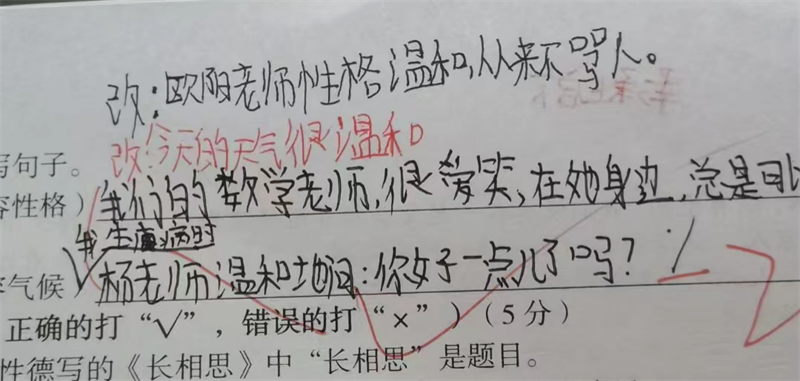 改：欧阳老师性格温和，从来不骂人。
改：今天的天气很温和
写句子。
容性格）我们的数学老师，很爱笑，在她身边，总是
我生病时
气候 杨老师温和地问：你好一点儿了吗？
正确的打“√”，错误的打“×”）（5分）
性德写的《长相思》中“长相思”是题目。